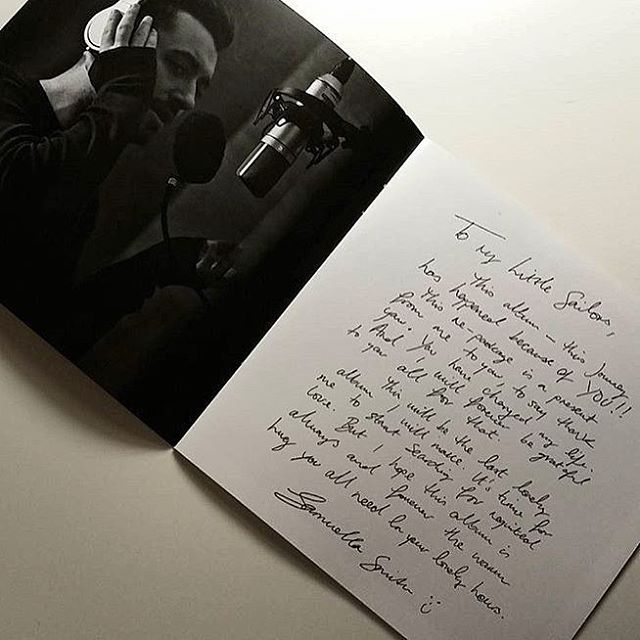 To my little Sailors,
This album - this Journey
has happened because of YOU!!
This re-package is a present
from me to you, to say thank
you. You have changed my life.
And I will forever be grateful
to you all for that.
This will be the last lonely
album I will make. It's time for
me to start searching for requited
love. But I hope this album is
always and forever the warm
hug you all need in your lonely hours.
Samuella
Smith :)